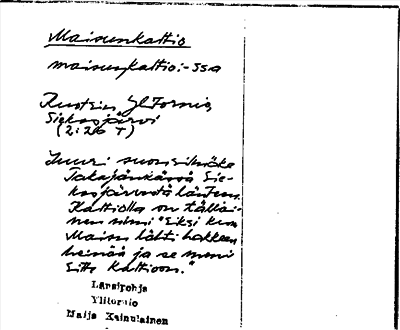 Maisunkallio
maisunkallio:-ssa
Ylitornio,
Siekasjärvi
(2:26 T)
Suuri
Takajänkässä Sie-
kasjärvestä länteen.
Kalliolla on tällai-
nen nimi "Siksi kun
Maisu lähti hakkeen
heinää ja se meni
sitte kallioon."
Länsipohja
Ylitornio
Maija Kainulainen